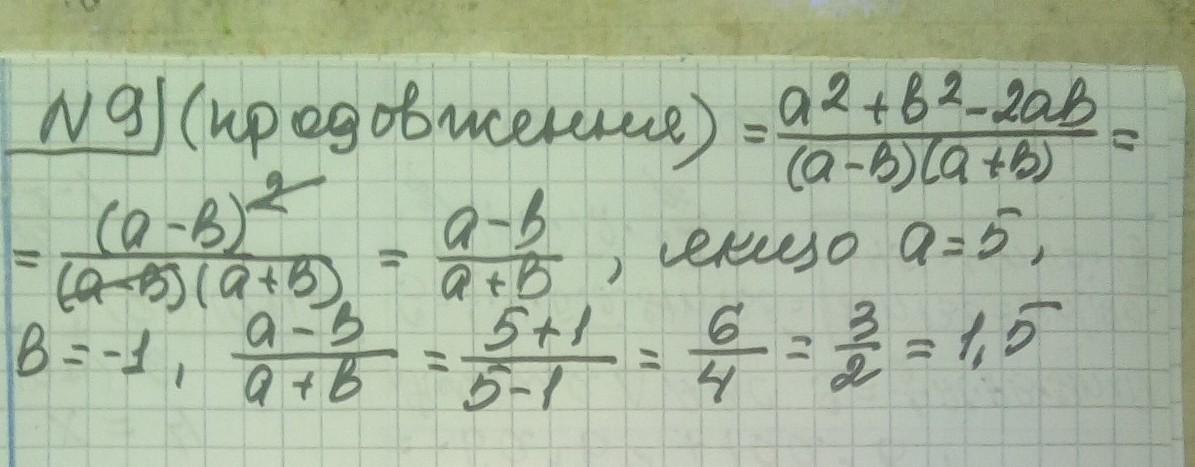 N9 (продовження) = \frac{a^2+b^2-2ab}{(a-b)(a+b)} =
= \frac{(a-b)^2}{(a-b)(a+b)} = \frac{a-b}{a+b}, якщо a=5,
b=-1, \frac{a-b}{a+b} = \frac{5+1}{5-1} = \frac{6}{4} = \frac{3}{2} = 1,5